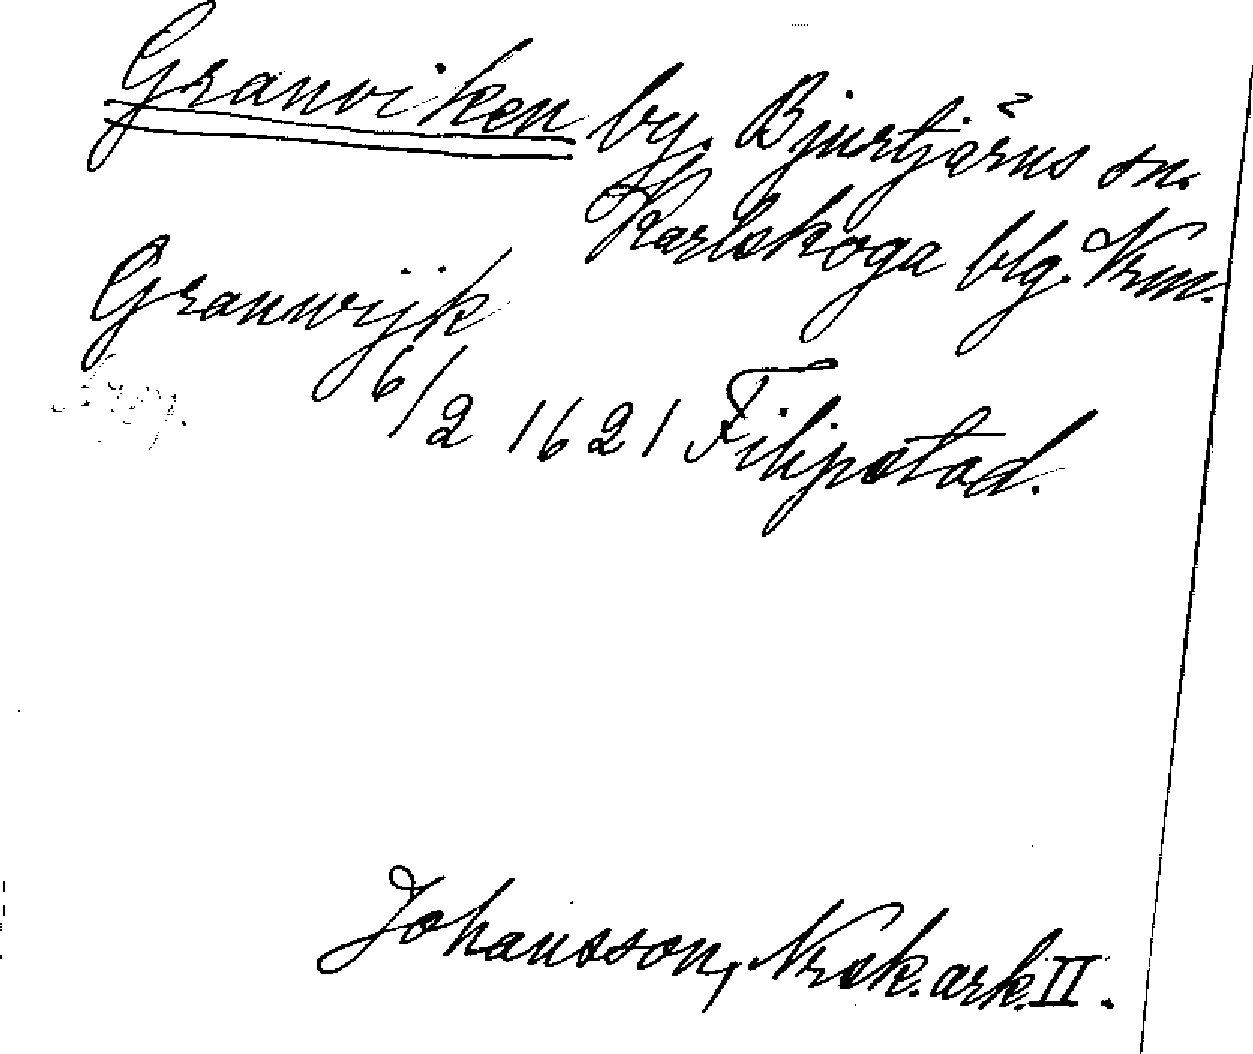 Granviken by. Bjurtjärns sn.
Karlskoga blg. Vrm.
Granwijk
6/2 1621 Filipstad.
Johansson, Nrsk. ark. II.